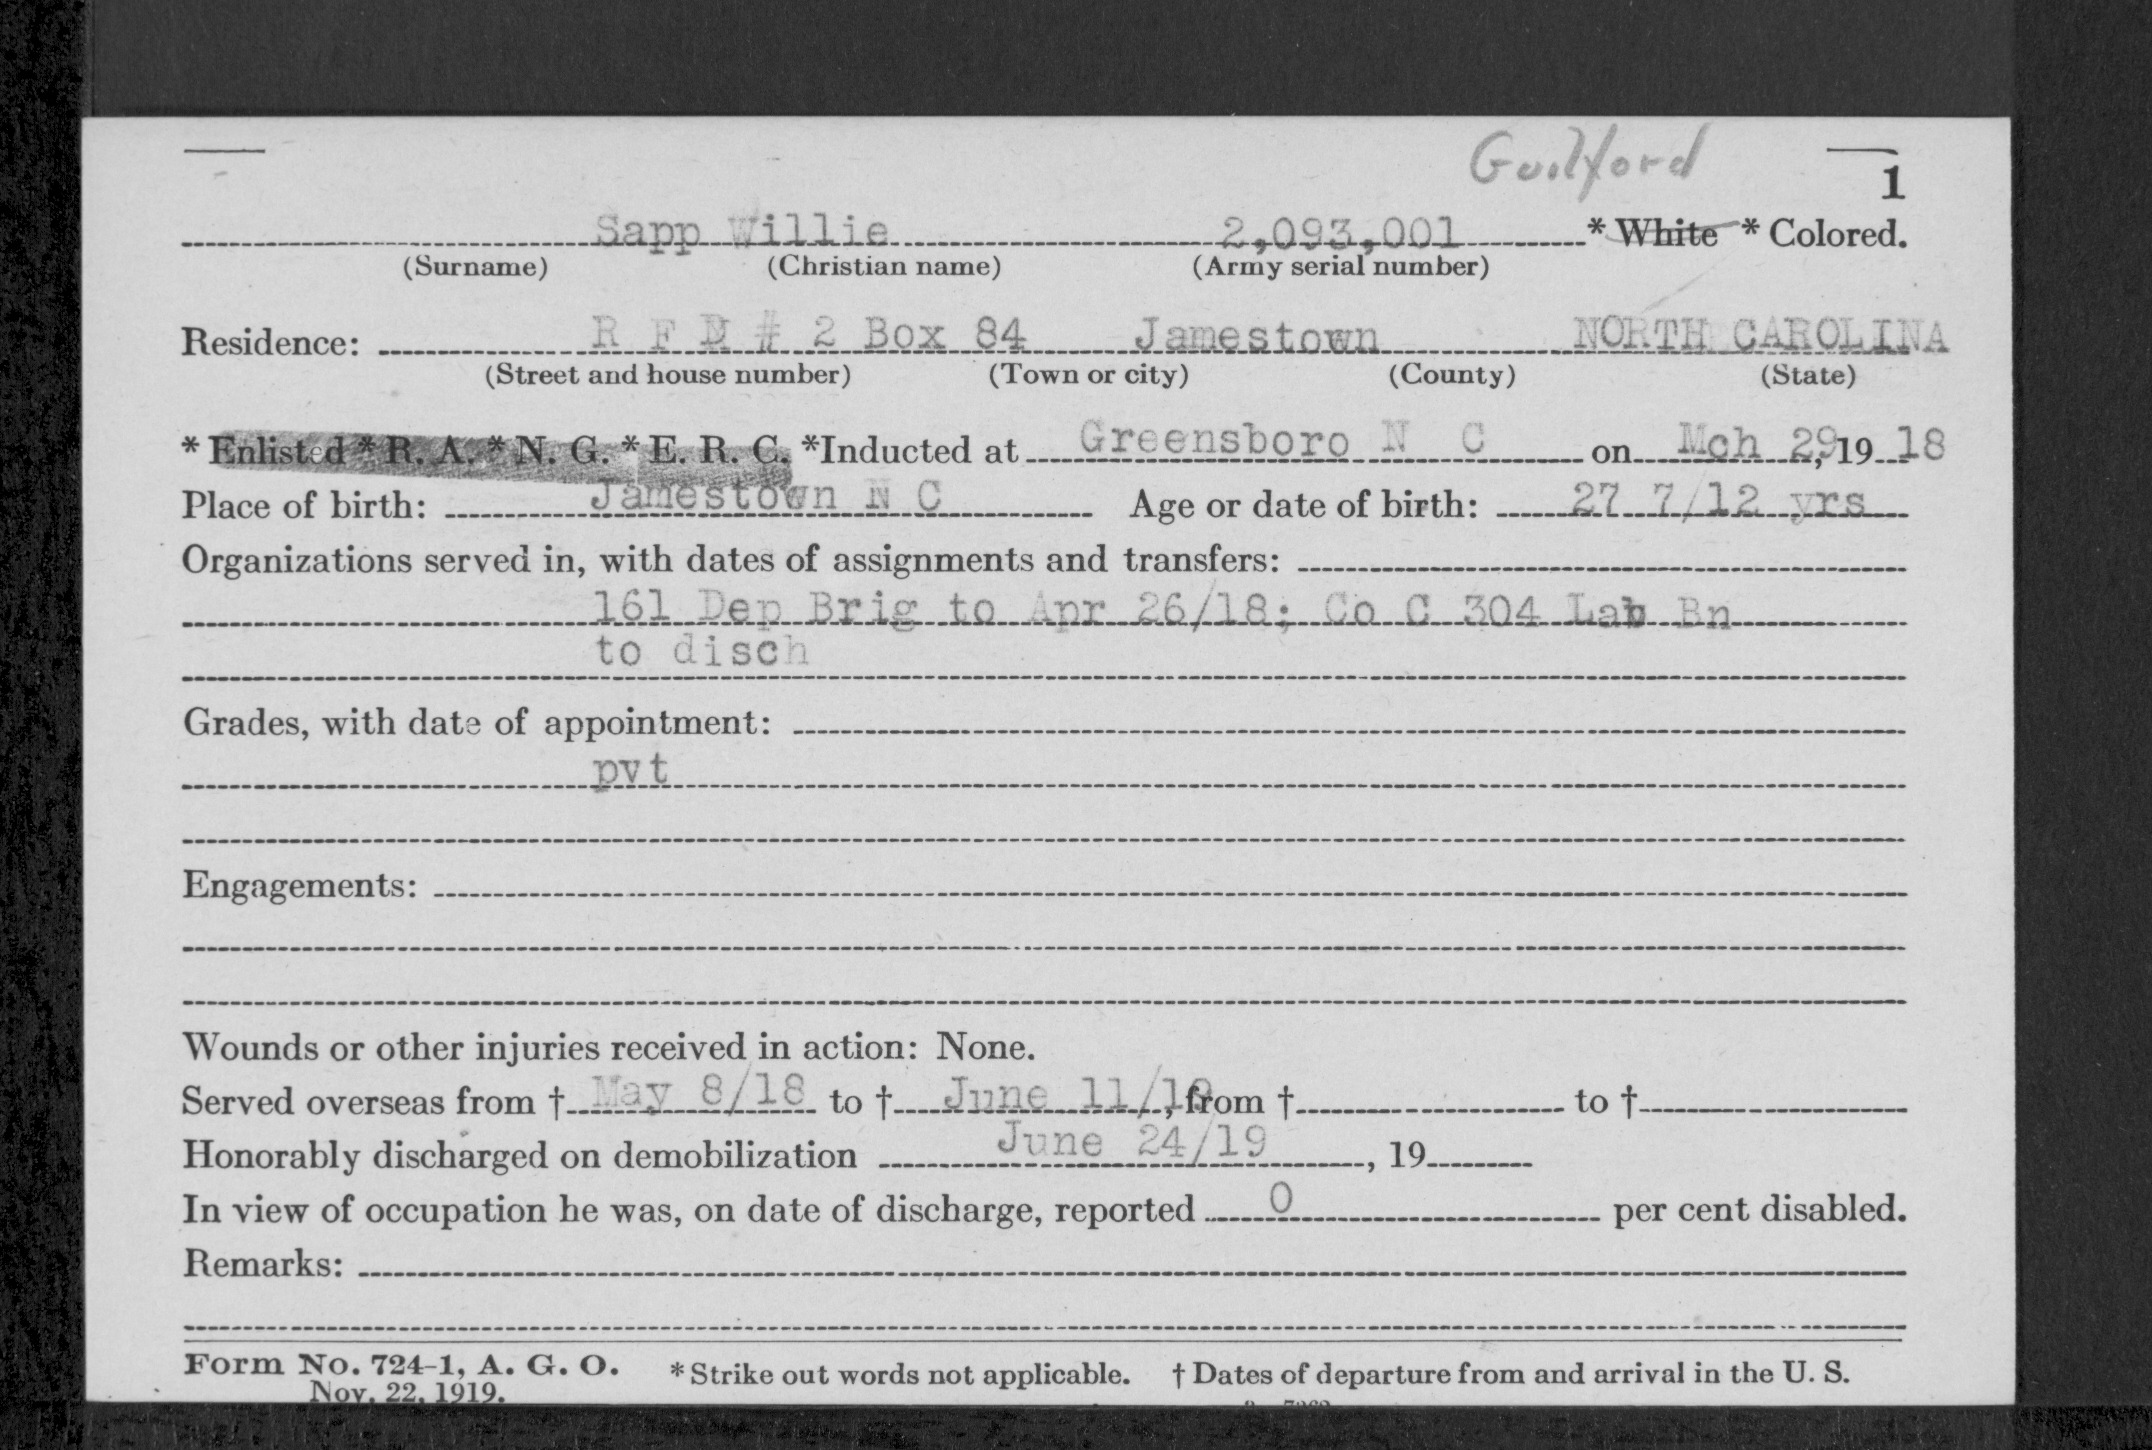 Guilford
1
Sapp Willie 2,093,001 * White * Colored.
(Surname) (Christian name) (Army serial number)
Residence: R F D # 2 Box 84 Jamestown NORTH CAROLINA
(Street and house number) (Town or city) (County) (State)
* Enlisted * R. A. * N. G. * E. R. C. *Inducted at Greensboro N C on Mch 29, 19 18
Place of birth: Jamestown N C Age or date of birth: 27 7/12 yrs
Organizations served in, with dates of assignments and transfers:
161 Dep Brig to Apr 26/18; Co C 304 Lab Bn
to disch
Grades, with date of appointment:
pvt
Engagements:
Wounds or other injuries received in action: None.
Served overseas from † May 8/18 to † June 11/19, from † to †
Honorably discharged on demobilization June 24/19, 19
In view of occupation he was, on date of discharge, reported 0 per cent disabled.
Remarks:
Form No. 724-1, A. G. O. * Strike out words not applicable. † Dates of departure from and arrival in the U. S.
Nov. 22, 1919.